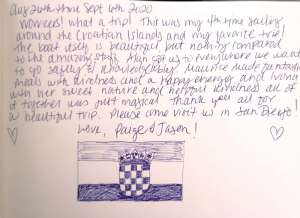 Aug 30th thru Sept 6th 2020
Wowees! What a trip! This was my 4th time sailing
around the Croatian Islands and my favorite trip!
The boat itself is beautiful but nothing compared
to the amazing staff. got us to everywhere we want
to go safely & knowledgably. Maurice made fantastic
meals with kindness and a happy energy and Ivona
with her sweet nature and helpful kindness all of
it together was just magical. Thank you all for
a beautiful trip. Please come visit us in San Diego!
Love, Paige & Jason!